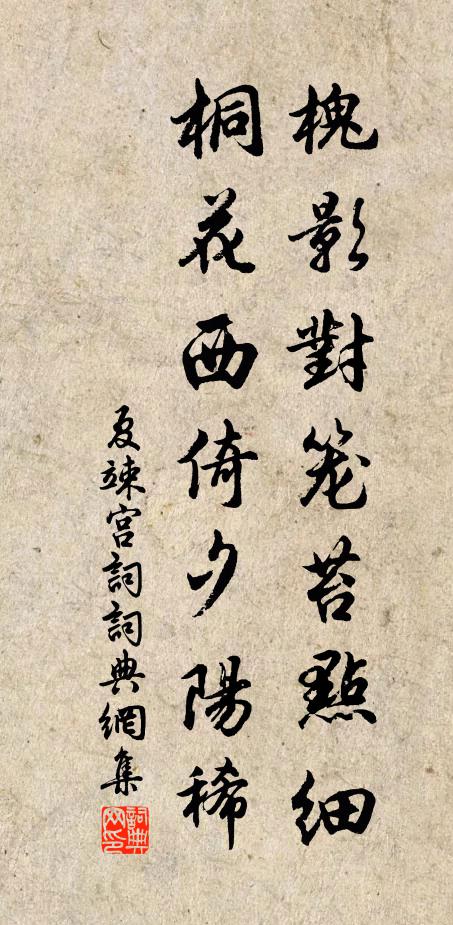 槐影對笼苔點细
桐花西倚夕陽稀
夏竦宫詞詞典網集
詞典网印